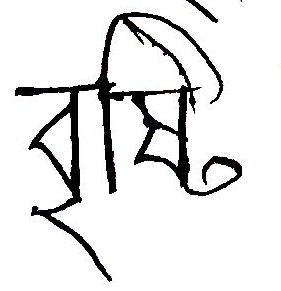 বৃষ্টি